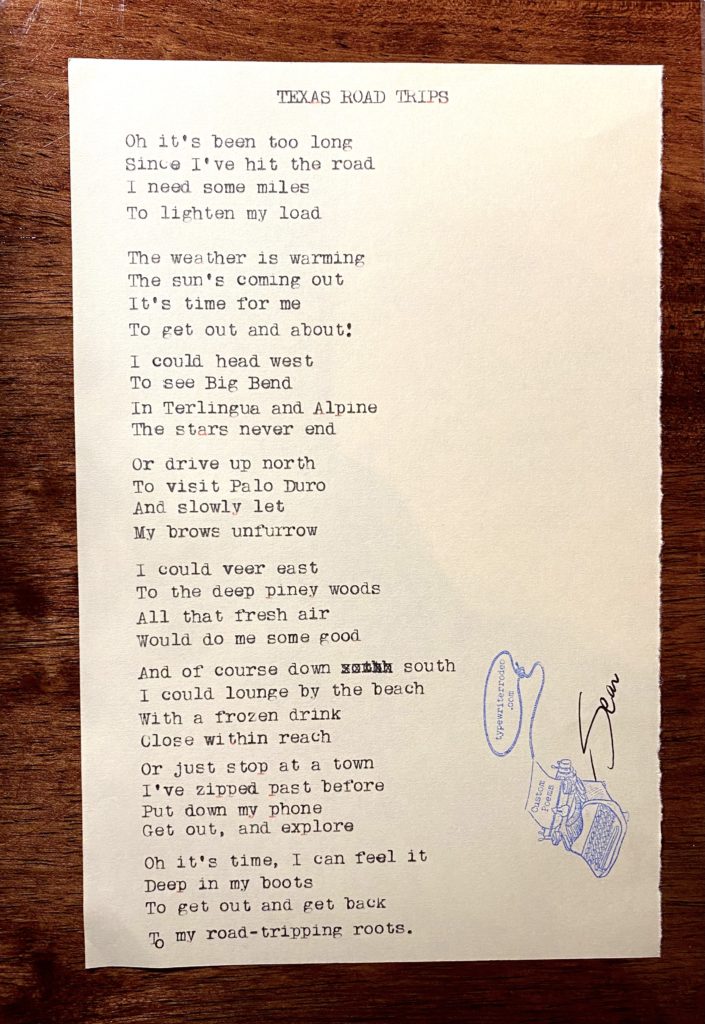 TEXAS ROAD TRIPS
Oh it's been too long
Since I've hit the road
I need some miles
To lighten my load
The weather is warming
The sun's coming out
It's time for me
To get out and about!
I could head west
To see Big Bend
In Terlingua and Alpine
The stars never end
Or drive up north
To visit Palo Duro
And slowly let
My brows unfurrow
I could veer east
To the deep piney woods
All that fresh air
Would do me some good
And of course down south
I could lounge by the beach
With a frozen drink
Close within reach
Or just stop at a town
I've zipped past before
Put down my phone
Get out, and explore
Oh it's time, I can feel it
Deep in my boots
To get out and get back
To my road-tripping roots.
typewriterrodeo
.com
Custom
Poems
Sean